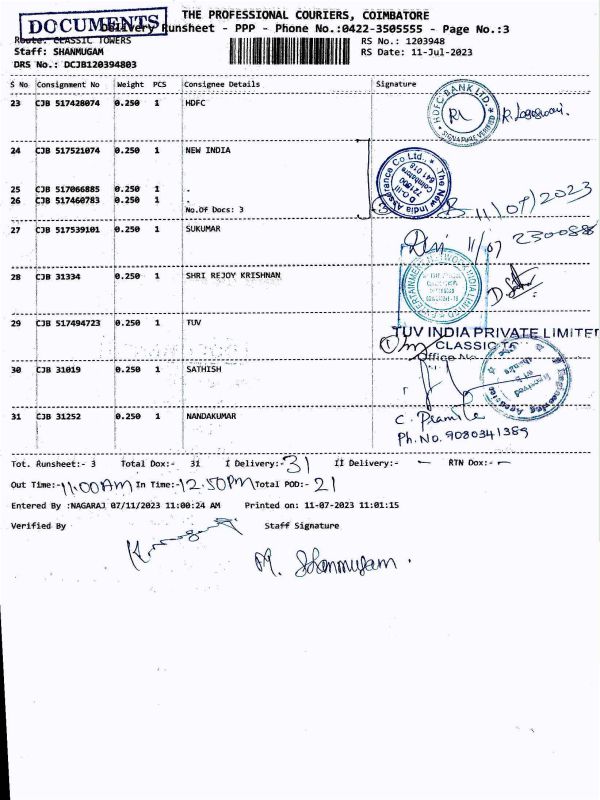 DOCUMENTS
THE PROFESSIONAL COURIERS, COIMBATORE
Delivery Runsheet - PPP - Phone No.:0422-3505555 - Page No.:3
Route: CLASSIC TOWERS
RS No.: 1203948
Staff: SHANMUGAM
RS Date: 11-Jul-2023
DRS No.: DCJB120394803
S No Consignment No Weight PCS Consignee Details Signature
23 CJB 517428074 0.250 1 HDFC
HDFC BANK LTD.
SIGNATURE VERIFIED
24 CJB 517521074 0.250 1 NEW INDIA
The New India Assurance Co Ltd.,
D.O.III
721800
Coimbatore
641 018
25 CJB 517066885 0.250 1 .
26 CJB 517460783 0.250 1 .
No.Of Docs: 3
11/07/2023
27 CJB 517539101 0.250 1 SUKUMAR
11/07
28 CJB 31334 0.250 1 SHRI REJOY KRISHNAN
29 CJB 517494723 0.250 1 TUV
TUV INDIA PRIVATE LIMITED
CLASSIC
Office No
30 CJB 31019 0.250 1 SATHISH
31 CJB 31252 0.250 1 NANDAKUMAR
C. Pramila
Ph.No. 9080341389
Tot. Runsheet:- 3 Total Dox:- 31 I Delivery:- 31 II Delivery:- - RTN Dox:- -
Out Time:- 11:00AM In Time:- 12.50PM Total POD:- 21
Entered By :NAGARAJ 07/11/2023 11:00:24 AM Printed on: 11-07-2023 11:01:15
Verified By Staff Signature
M. Shanmugam.